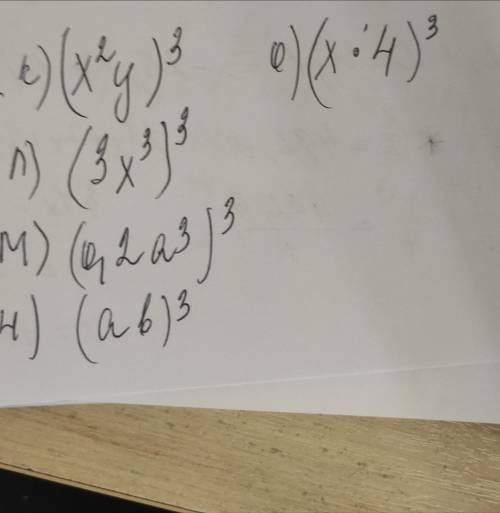 к) (x²y)³
е) (x · 4)³
л) (3x³)³
м) (0,2a³)³
н) (ab)³